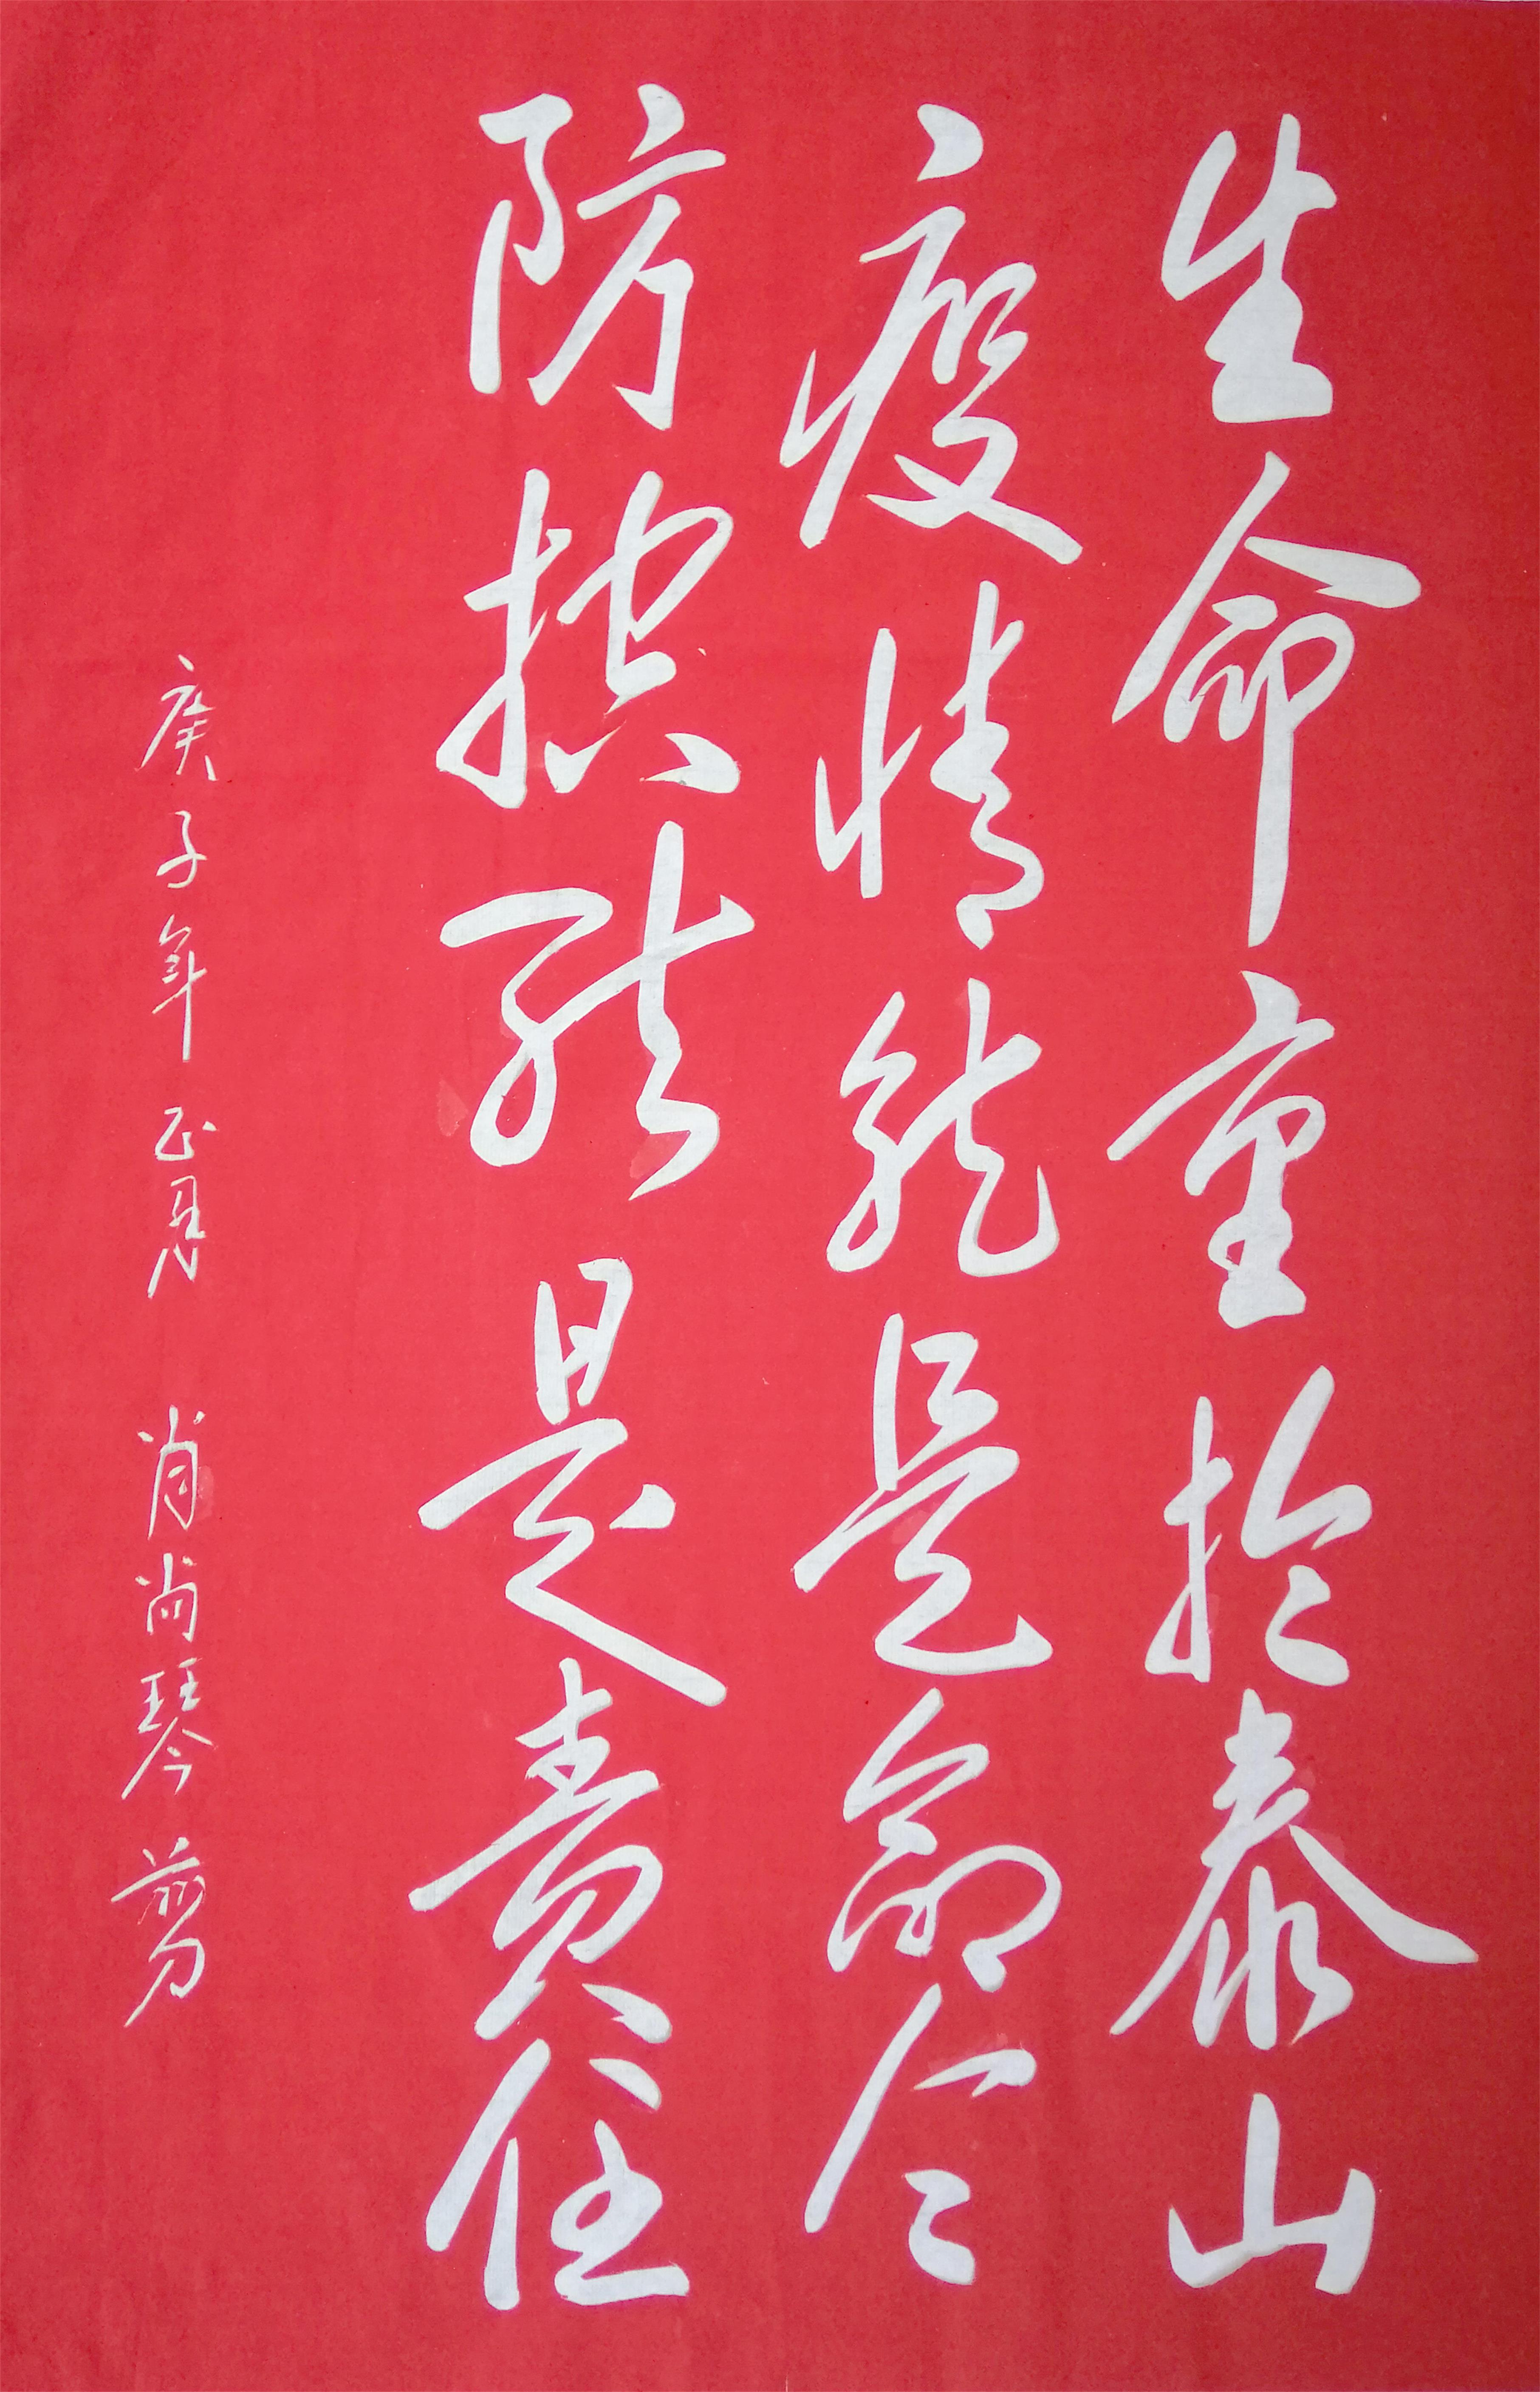 生命重於泰山
疫情就是命令
防控就是责任
庚子年正月 肖尚琴 剪